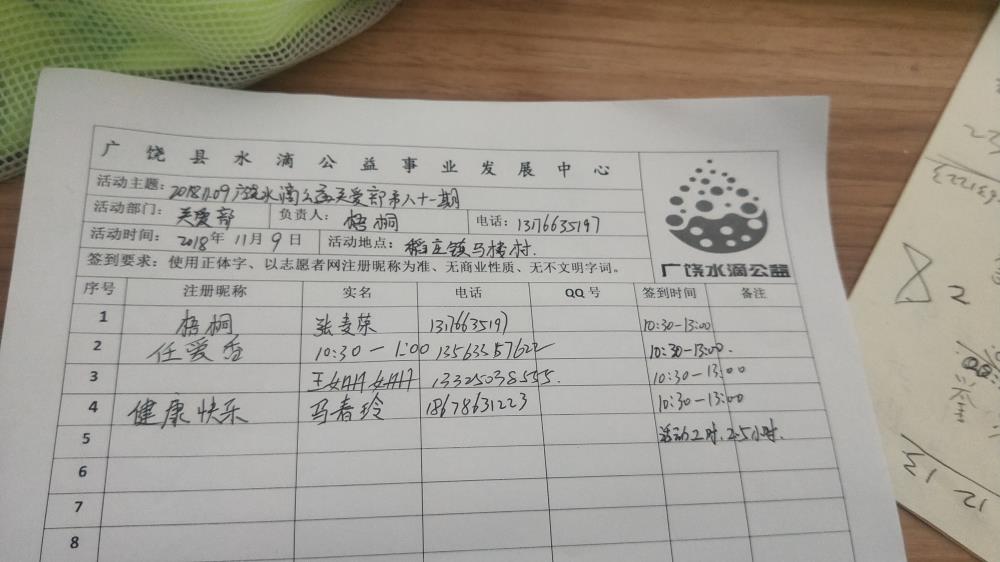 广饶县水滴公益事业发展中心
活动主题：2018.11.09广饶水滴公益关爱部第八十一期
活动部门：关爱部 负责人：梧桐 电话：13176635197
活动时间：2018年11月9日 活动地点：稻庄镇马楼村.
签到要求：使用正体字、以志愿者网注册昵称为准、无商业性质、无不文明字词。
广饶水滴公益
序号 注册昵称 实名 电话 QQ号 签到时间 备注
1 梧桐 张麦荣 13176635197 10:30-13:00
2 任爱香 10:30-1:00 13563357622 10:30-13:00.
3 王姗姗 13325038555. 10:30-13:00
4 健康快乐 马春玲 18678631223 10:30-13:00
5 活动2时.2.5小时.
6
7
8
2
12 13